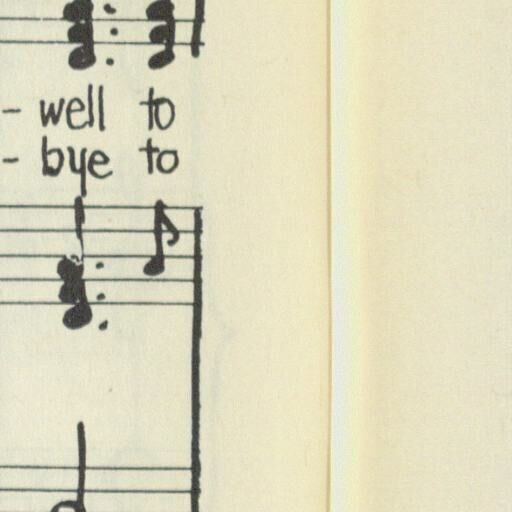 - well to
- bye to